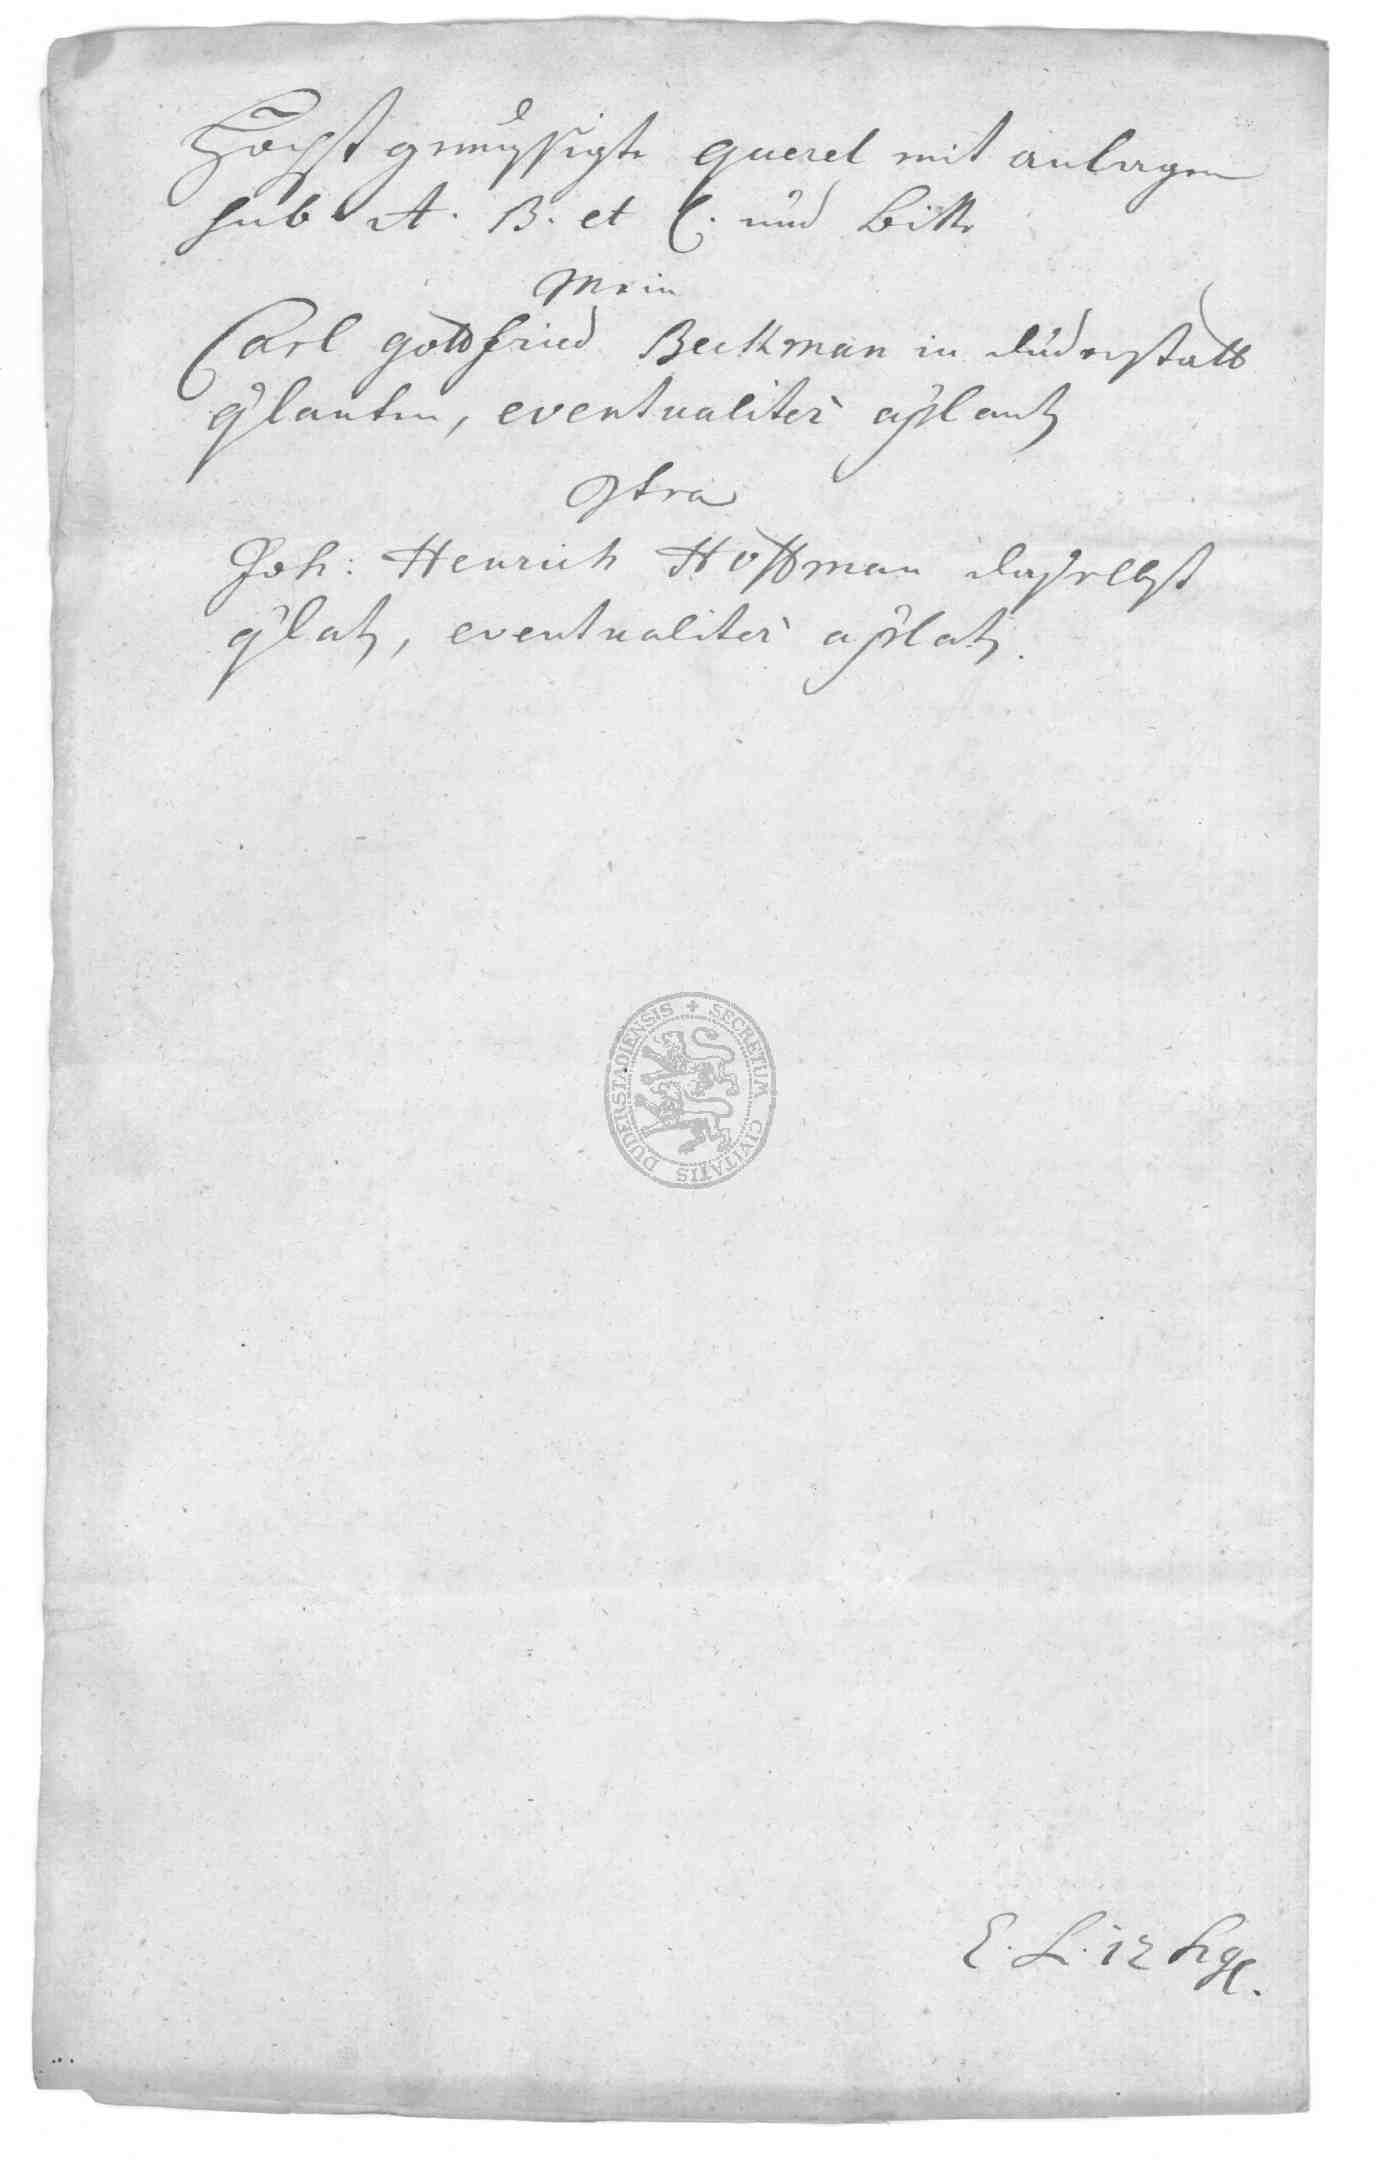 Höchst gemüssigte querel mit anlagen
sub A. B. et C. und bitte
Mein
Carl Gottfried Beckman in duderstatt
qlanten, eventualiter aplantz
Ctra
Joh: Henrich Hoffman daselbst
qlatz, eventualiter aplatz.
SECRETUM CIVITATIS DUDERSTADIENSIS
E. L. 12 hgl.